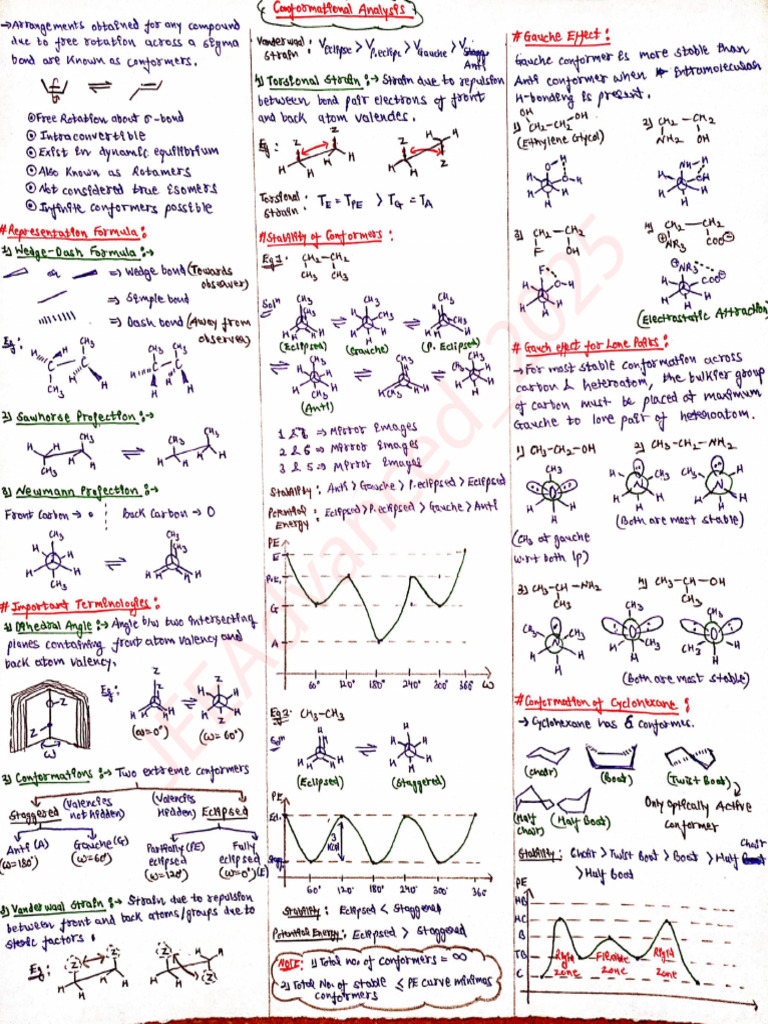 Conformational Analysis
→Arrangements obtained for any compound
due to free rotation across a sigma
bond are known as conformers.
⊙ Free Rotation about σ-bond
⊙ Intraconvertible
⊙ Exist in dynamic equilibrium
⊙ Also known as Rotamers
⊙ Not considered true isomers
⊙ Infinite conformers possible
# Representation Formula:
1) Wedge-Dash Formula:→
or ⇒ Wedge bond (Towards
observer)
⇒ Simple bond
⇒ Dash bond (Away from
observer)
Eg:
2) Sawhorse Projection:→
3) Newmann Projection:→
Front Carbon →
Back Carbon → O
# Important Terminologies:
1) Dihedral Angle:→ Angle b/w two intersecting
planes containing front atom valency and
back atom valency.
Eg:
(ω=0°)
(ω=60°)
2) Conformations:→ Two extreme conformers
Staggered (Valencies
not hidden)
(Valencies
hidden) Eclipsed
Anti (A)
(ω=180°)
Gauche (G)
(ω=60°)
Partially (PE)
eclipsed
(ω=120°)
Fully
eclipsed
(ω=0°)(E)
3) Vanderwaal Strain:→ Strain due to repulsion
between front and back atoms/groups due to
steric factors.
Eg:
Vanderwaal
Strain :
V Eclipse > V P.eclipse > V Gauche > V Stagg.
Anti
4) Torsional Strain:→ Strain due to repulsion
between bond pair electrons of front
and back atom valencies.
Eg:
Torsional
Strain :
T E = T PE > T G = T A
# Stability of Conformers:
Eg 1: CH2-CH2
CH3 CH3
Solⁿ
(Eclipsed)
(Gauche)
(P. Eclipsed)
(Anti)
⇒ Mirror Images
2 & 6 ⇒ Mirror Images
3 & 5 ⇒ Mirror Images
Stability : Anti > Gauche > P.eclipsed > Eclipsed
Potential
Energy : Eclipsed > P.eclipsed > Gauche > Anti
PE
E
P.E.
G
A
60° 120° 180° 240° 300° 360° ω
Eg 2: CH3-CH3
Solⁿ
(Eclipsed)
(Staggered)
PE
Ecl.
Stagg.
3
Kcal
60° 120° 180° 240° 300° 360
Stability : Eclipsed < Staggered
Potential Energy : Eclipsed > Staggered
NOTE: 1) Total no. of conformers = ∞
2) Total No. of stable ≤ PE curve minimas
conformers
# Gauche Effect:
Gauche conformer is more stable than
Anti conformer when Intramolecular
H-bonding is present.
1) OH
CH2-CH2-OH
(Ethylene Glycol)
2) CH2 - CH2
NH2 OH
3) CH2 - CH2
F OH
4) CH2 - CH2
⊕NR3 COO⊖
(Electrostatic Attraction)
# Gauch effect for Lone Pairs:
→ For most stable conformation across
carbon & heteroatom, the bulkier group
of carbon must be placed at maximum
Gauche to lone pair of heteroatom.
1) CH3-CH2-OH
2) CH3-CH2-NH2
(CH3 at gauche
w.r.t both lp)
(Both are most stable)
3) CH3-CH-NH2
CH3
4) CH3-CH-OH
CH3
(Both are most stable)
# Conformation of Cyclohexane:
→ Cyclohexane has 6 conformers.
(Chair)
(Boat)
(Twist Boat)
(Half
Chair)
(Half Boat)
Only optically Active
conformer
Stability : Chair > Twist Boat > Boat > Half Chair
> Half Boat
PE
HB
HC
B
TB
C
Rigid
zone
Flexible
zone
Rigid
zone
JEEAdvanced_2025